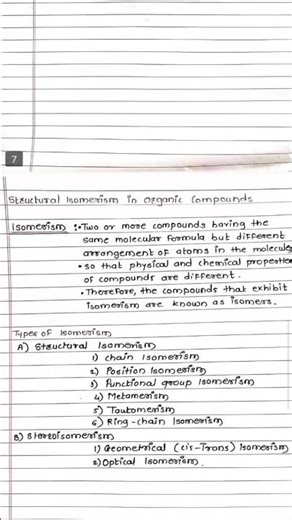 7
Structural Isomerism in Organic Compounds
Isomerism :• Two or more compounds having the
same molecular formula but different
arrangement of atoms in the molecules
• so that physical and chemical properties
of compounds are different.
• Therefore, the compounds that exhibit
isomerism are known as isomers.
Types of Isomerism
A) Structural Isomerism
1) chain Isomerism
2) Position Isomerism
3) Functional group Isomerism
4) Metamerism
5) Tautomerism
6) Ring-chain Isomerism
B) Stereoisomerism
1) Geometrical (cis-Trans) Isomerism
2) Optical Isomerism.